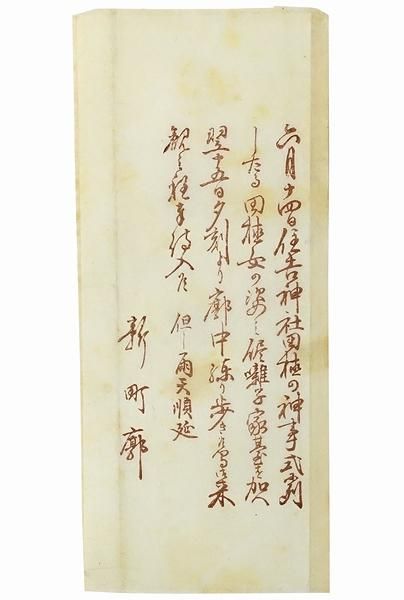 六月十四日住吉神社田植の神事式列
したる田植女の姿に囃子家を加へ
翌十五日夕刻より廓中練り歩き
奉待入候 但し雨天順延
新町廓